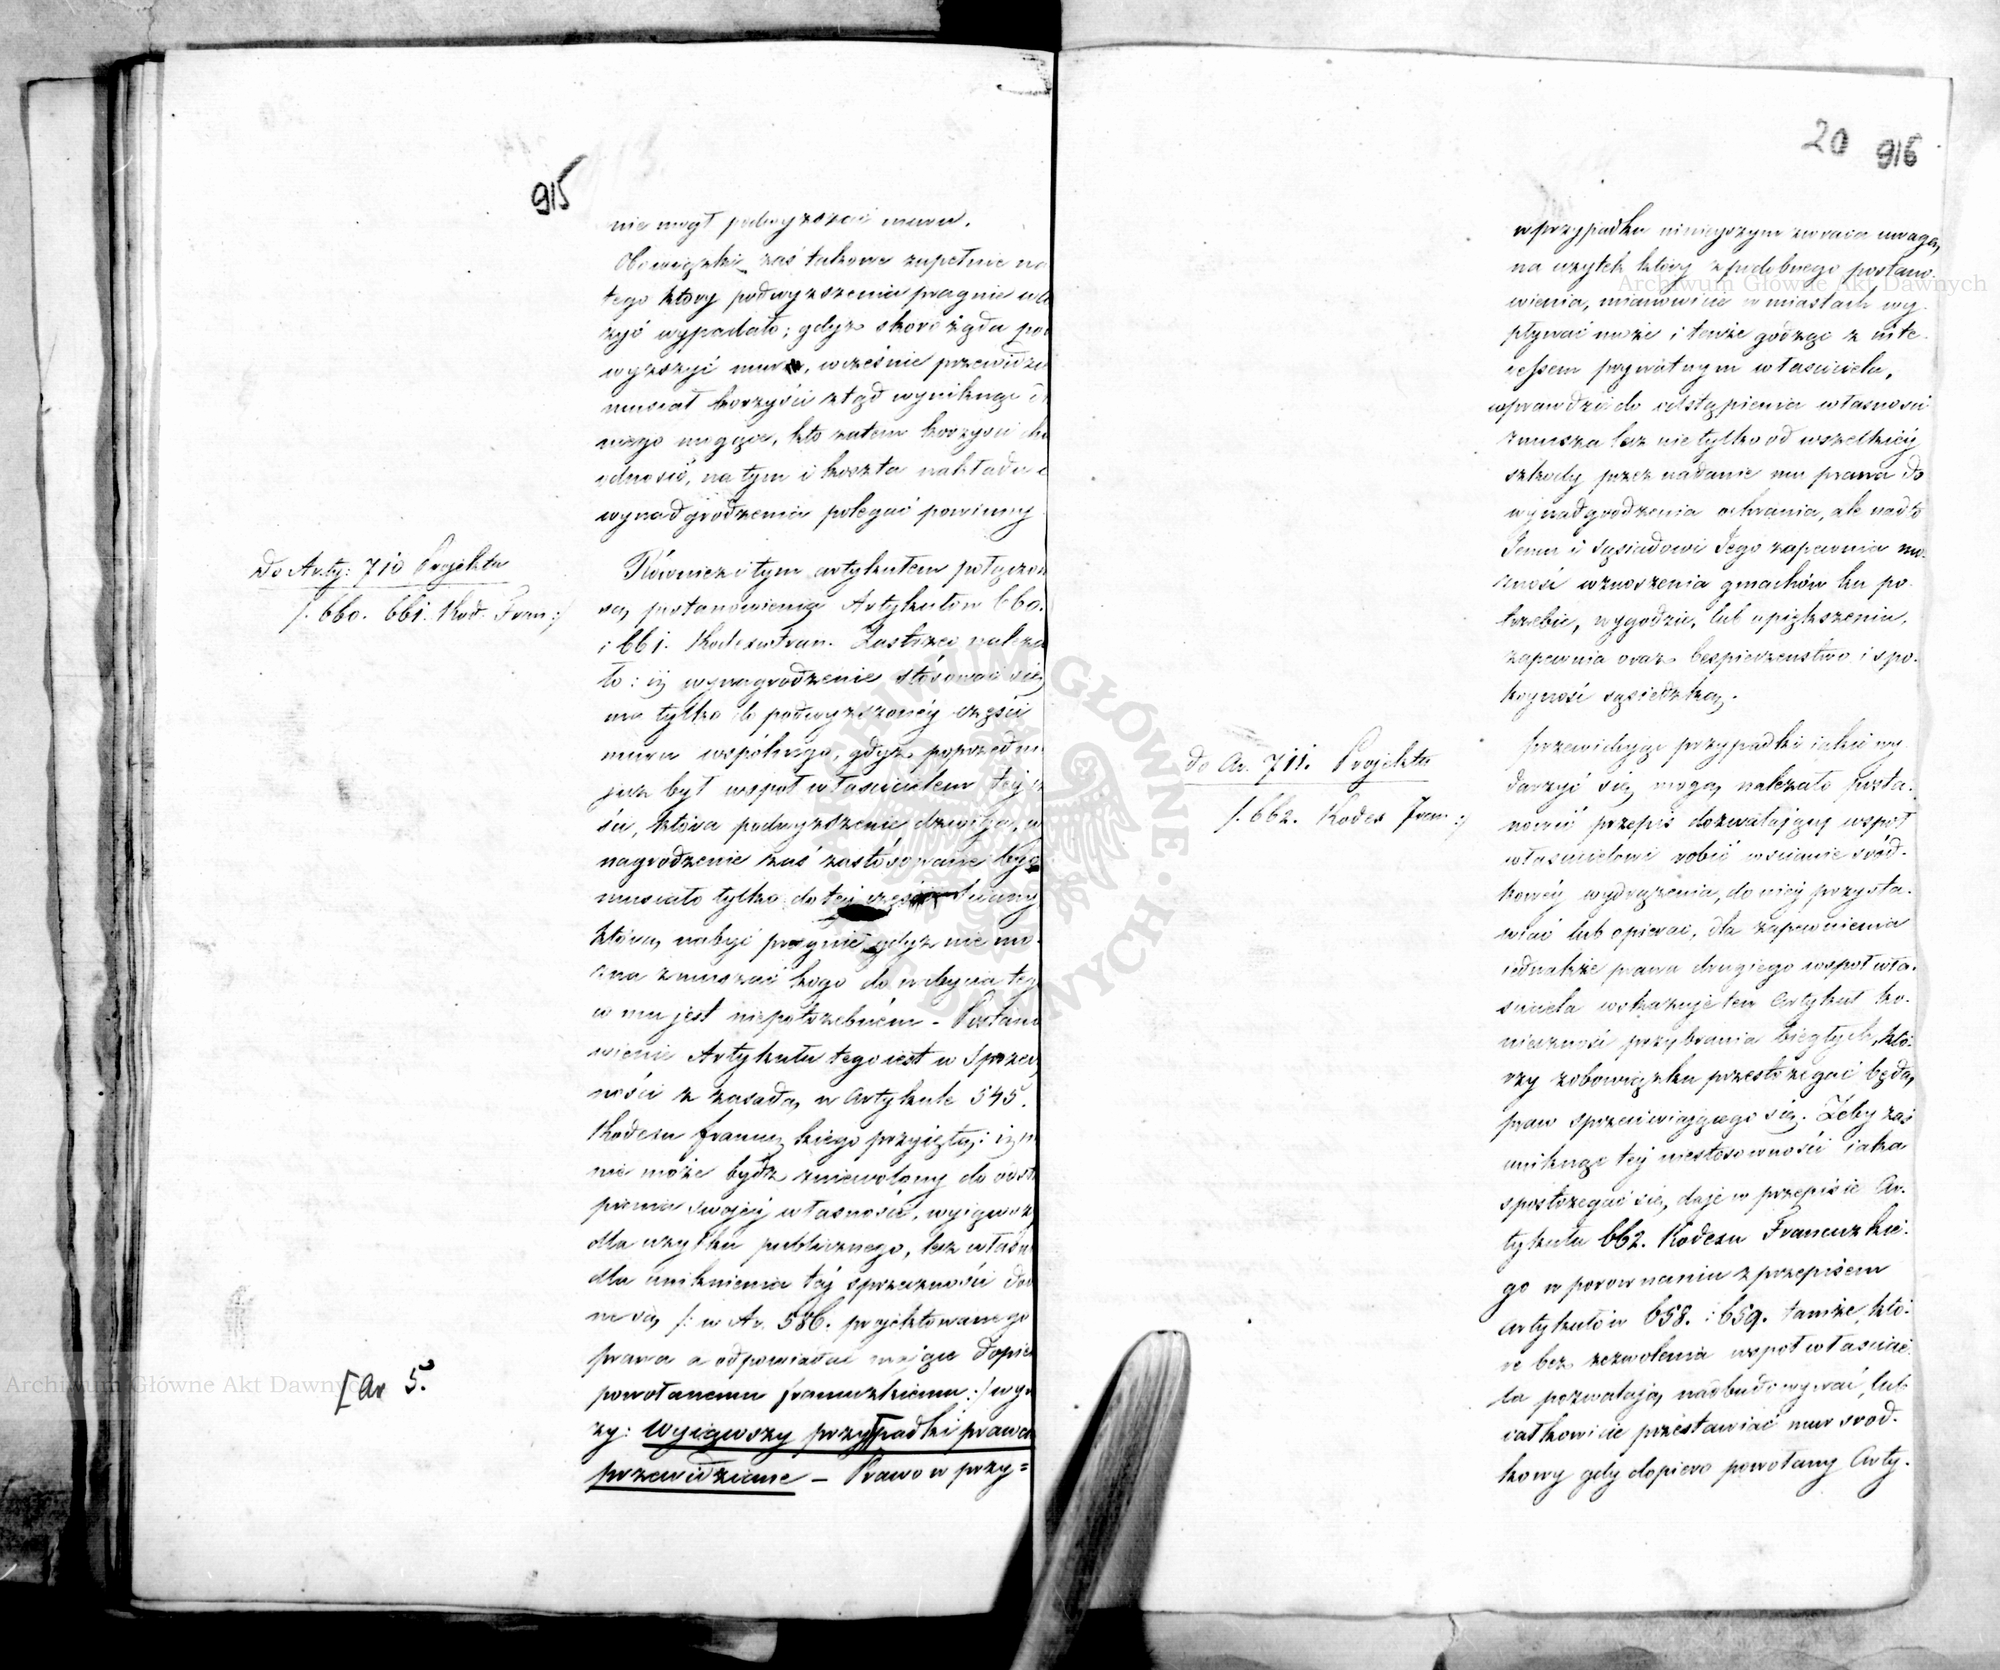 915
nie mogł podwyższać muru.
Obowiązki zaś takowe zupełnie na
tego ktory podwyższenia pragnie
wypadało; gdyż skoro żąda pod
wyższyć mur, wcześnie przewidzi
musiał korzyści ztąd wyniknąć
niego mogące, kto zatem korzyści
odnosić, na tym i koszta nakładu
wynadgrodzenia polegać powinny
Do Arty: 710 Projektu
/. 660. 661. Kod. Fran:/
Również i tym artykułem połączon
są postanowienia Artykułów 660.
i 661. Kodexu Fran. Zastrzec należa
ło: iż wynagrodzenie stósować się
ma tylko do podwyższonéy części
muru wspólnego, gdyż poprzedni
już był wspołwłaścicielem tey
ści, która podwyższenie dzwiga, w
nagrodzenie zaś zastósowane być
musiało tylko do téy części ściany
którą nabyć pragnie gdyż nie mo-
żna zmuszać kogo do nabycia teg
co mu jest niepotrzebném - Postano
wienie Artykułu tego iest w sprzecz
ności z zasadą w Artykule 545.
Kodexu francuzkiego przyiętą: iż n
nie może bydź zniewolony do odst
pienia swojéy własności, wyiąwszy
dla użytku publicznego, lecz własn
dla uniknienia téj sprzeczności do
ne są /: w Ar. 586. projektowanego
prawa a odpowiadać mające dopie
powołanemu francuzkiemu :/ wyr
zy: wyiąwszy przypadki prawe
przewidziane - Prawo w przy=
[Ar 5.
20 916
w przypadku ninieyszym zwraca uwagę,
na użytek który z podobnego postano-
wienia, mianowicie w miastach wy-
pływać może i tenże godząc z inte-
ressem prywatnym właściciela,
wprawdzie do odstąpienia własności
zmusza lecz nie tylko od wszelkiéy
szkody przez nadanie mu prawa do
wynadgrodzenia ochrania, ale nadto
Jemu i sąsiadowi Jego zapewnia mo-
żność wznoszenia gmachów ku po-
trzebie, wygodzie, lub upiększeniu,
zapewnia oraz bespieczenstwo i spo-
koyność sąsiedzką.
do Ar. 711. Projektu
/. 662. Kodex Fran :/
Przewidując przypadki iakie wy-
darzyć się mogą należało posta-
nowić przepis dozwalający wspoł
właścicielowi robić w ścianie śród-
kowéy wydrążenia, do niéy przysta-
wiać lub opierać, dla zapewnienia
iednakże prawa drugiego wspoł wła-
ściciela wskazuje ten Artykuł ko-
nieczność przybrania biegłych, któ-
rzy zobowiązku przestrzegać będą,
praw sprzeciwiającego się. Żeby zaś
uniknąć téy niestosowności iaka
spostrzegać się, daje w przepisie Ar-
tykułu 662. Kodexu Francuzkie-
go w porownaniu z przepisem
Artykułów 658. i 659. tamże, któ-
re bez zezwolenia wspołwłaścicie-
la pozwalają nadbudowywać, lub
całkowicie przestawiać mur śród-
kowy gdy dopiero powołany Arty-